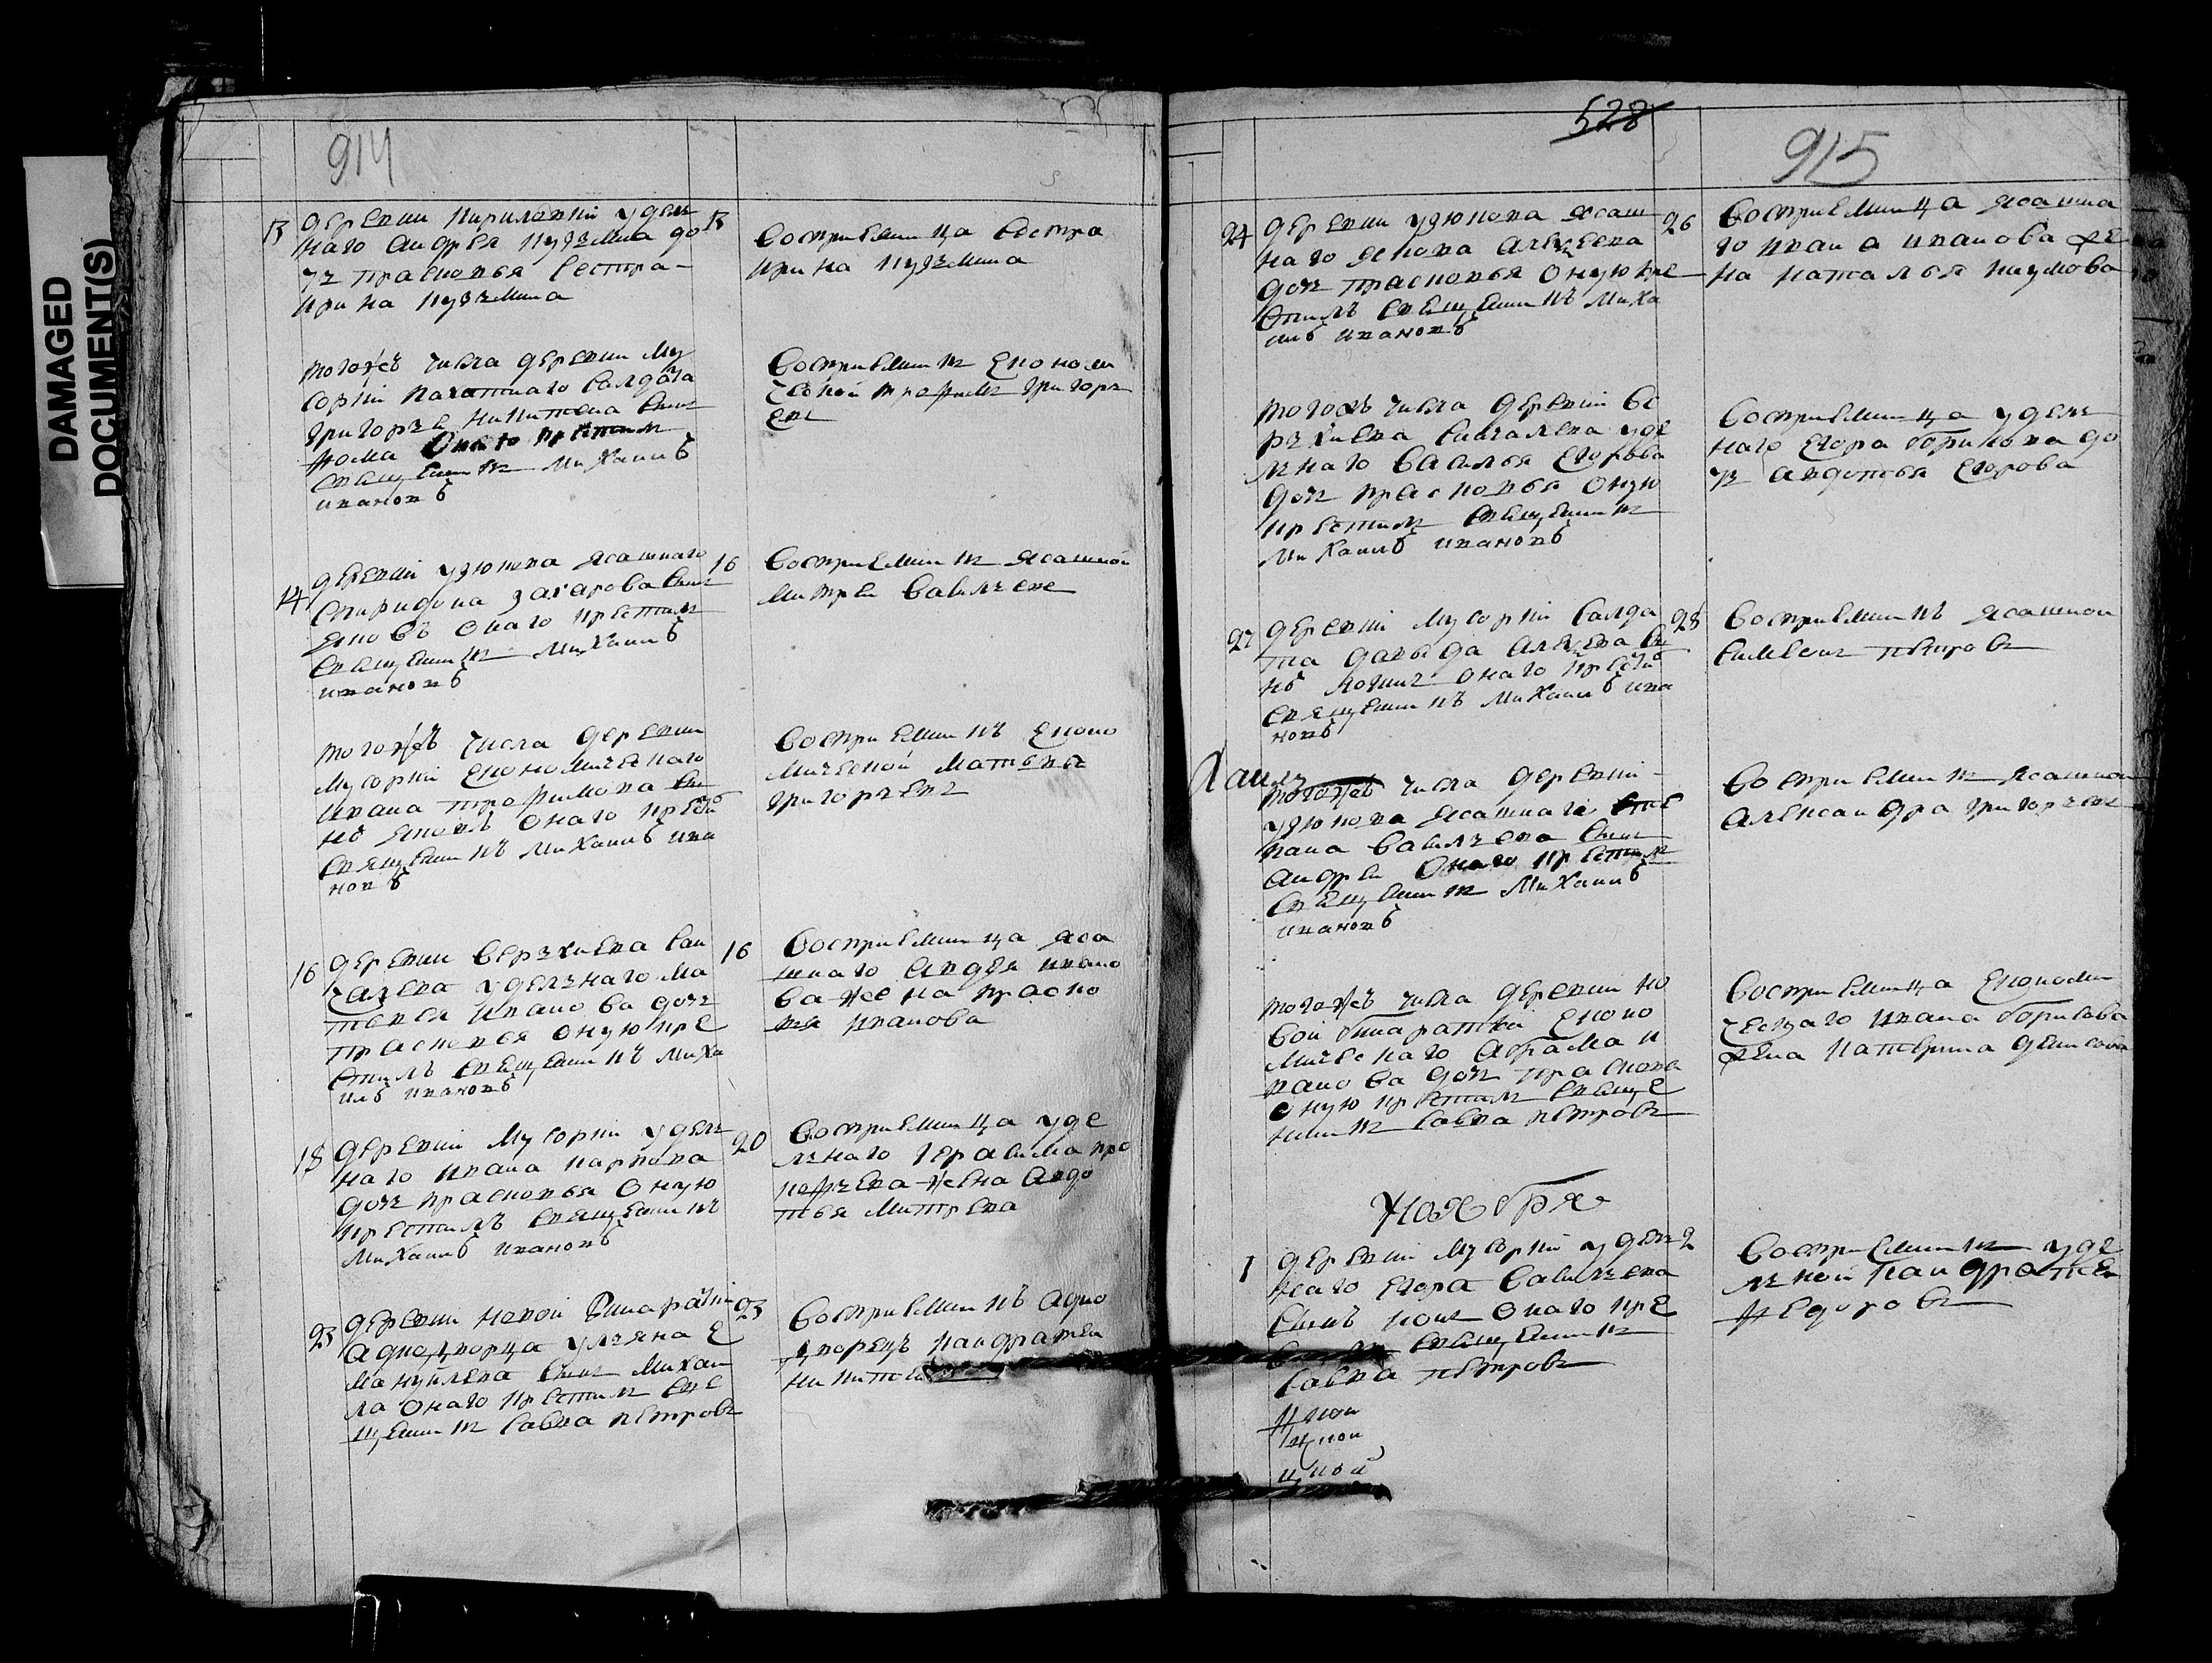 DAMAGED
DOCUMENT(S)
914
13 деревни Кириловки удель 13
наго Андрея Кузьмина до
чь Прасковья сестра
Ирина Кузьмина
Восприемница сестра
Ирина Кузьмина
тогожъ числа деревни Му
соркі пахатнаго салдата
Григорье Никитева сынъ
Фома Онаго крестилъ
священникъ Михаилъ
ивановъ
Восприемникъ Економи
ческой Трефимъ Григорь
евъ
14 деревни узюкова ясашнаго 16
Спиридона захарова сынъ
Яковъ Онаго крестилъ
священникъ Михаилъ
ивановъ
Восприемникъ Ясашной
Митрей Савельевъ
тогожъ числа деревни
Мусоркі Економическаго
ивана трофимова сы
нъ яковъ Онаго крестилъ
священникъ Михаилъ ива
новъ
Восприемникъ Еконо
мическои Матвей
Григорьевъ
16 деревни верхнева Сан 16
чалева удельнаго Ма
твея иванова дочь
Прасковья Оную кре
стилъ священникъ Миха
илъ ивановъ
Восприемница яса
шнаго иванo
ва жена праско
вя иванова
18 деревни Мусоркі удель 20
наго ивана карпова
дочь прасковья Оную
крестилъ священникъ
Михаилъ ивановъ
Восприемница уде
льнаго Герасима про
кофьева жена Авдо
тья Митрева
23 деревни новой 23
аднодворца ульяна Е
мануйлева сынъ Михаи
ла Онаго крестилъ свя
щенникъ Савва петровъ
Восприемникъ адно
дворецъ кандратеи
528
915
24 деревни узюкова ясаш 26
наго Якова Алексеева
дочь прасковья Оную кре
стилъ священникъ Миха
илъ ивановъ
Восприемница ясашна
го ивана иванова же
на наталья наумова
тогожъ числа деревни ве
рхнева санчалева уде
льнаго василья Егорова
дочь прасковья Оную
крестилъ священникъ
Михаилъ ивановъ
Восприемница удель
наго Егора борисова до
чь авдотья Егорова
27 деревни Мусоркі салда 28
та давыда алексеева сы
нъ Онаго крестилъ
священникъ Михаилъ ива
новъ
Восприемникъ Ясашнои
Симеонъ петровъ
тогожъ числа деревни
узюкова ясашнаго сте
пана савельева сынъ
андреи Онаго крестилъ
священникъ Михаилъ
ивановъ
Восприемникъ Ясашнои
Александра Григорьевъ
тогожъ числа деревни но
вои Еконо
мическаго абрама и
ванова дочь прасковя
оную крестилъ свяще
нникъ Савва петровъ
Восприемница Економи
ческаго ивана борисова
жена катерина денисова
Ноября
1 деревни Мусоркі удель 2
наго Егора савельева
сынъ Онаго кре
стилъ священникъ
Савва петровъ
Восприемникъ уде
льной Кандратеи
Федоровъ